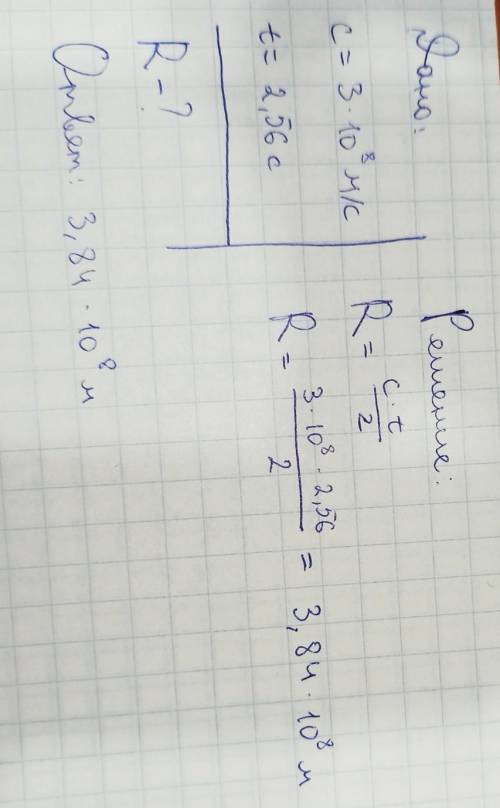 Дано:
c = 3 · 10⁸ м/с
t = 2,56 с
R - ?
Решение:
R = c·t / 2
R = 3 · 10⁸ · 2,56 / 2 = 3,84 · 10⁸ м
Ответ: 3,84 · 10⁸ м